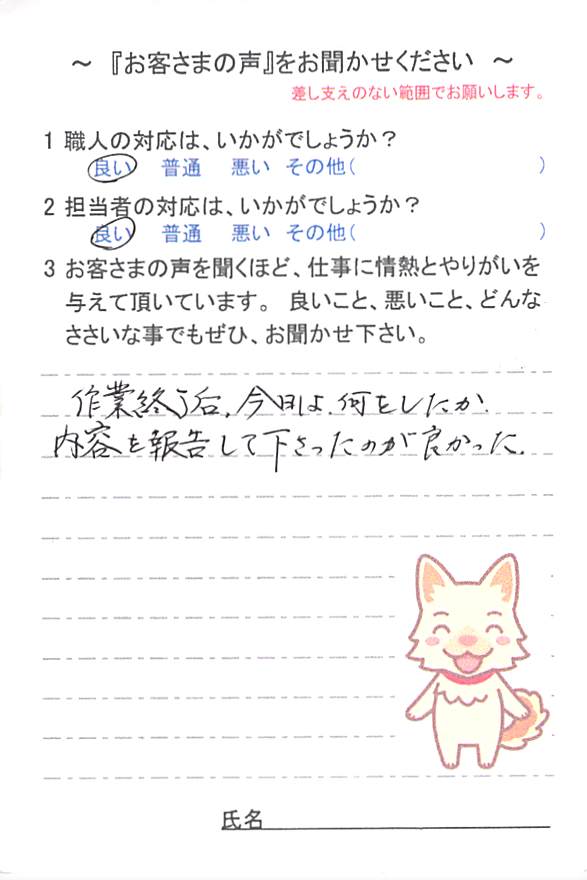 ～ 『お客さまの声』をお聞かせください ～
差し支えのない範囲でお願いします。
1 職人の対応は、いかがでしょうか？
良い 普通 悪い その他( )
2 担当者の対応は、いかがでしょうか？
良い 普通 悪い その他( )
3 お客さまの声を聞くほど、仕事に情熱とやりがいを
与えて頂いています。 良いこと、悪いこと、どんな
ささいな事でもぜひ、お聞かせ下さい。
作業終了后、今日は、何をしたか、
内容を報告して下さったのが良かった。
氏名